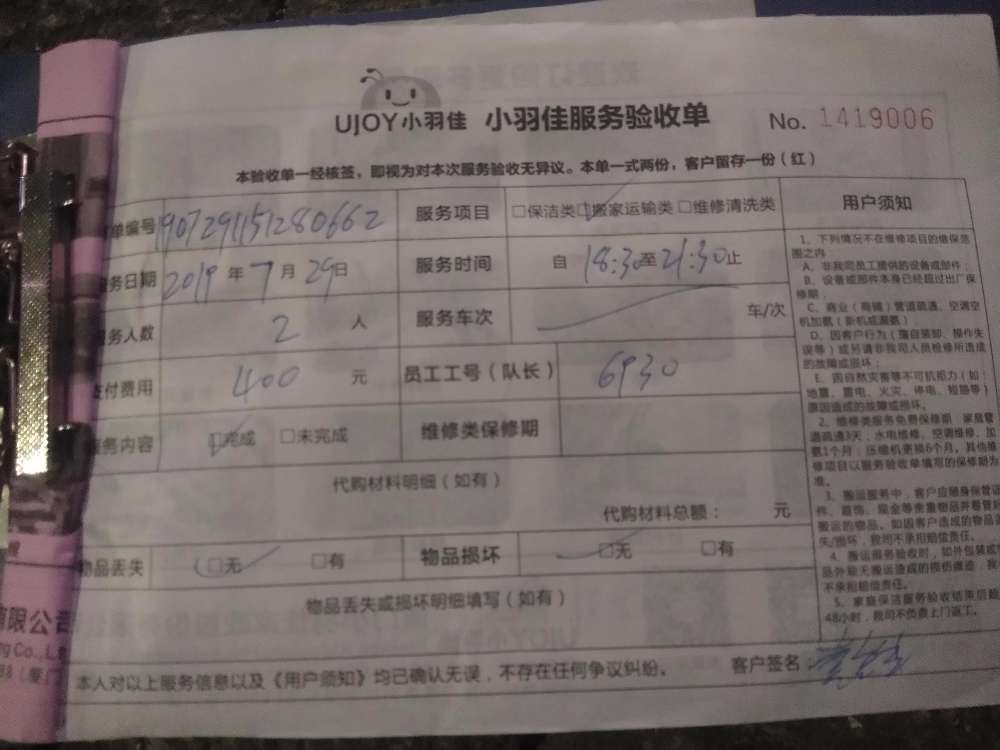 UJOY小羽佳 小羽佳服务验收单 No. 1419006
本验收单一经核签，即视为对本次服务验收无异议。本单一式两份，客户留存一份（红）
单编号 190729151280662 服务项目 □保洁类 □搬家运输类 □维修清洗类
务日期 2019年7月29日 服务时间 自18:30至21:30止
务人数 2 人 服务车次 车/次
支付费用 400 元 员工工号（队长） 6930
服务内容 □完成 □未完成 维修类保修期
代购材料明细（如有）
代购材料总额： 元
物品丢失 □无 □有 物品损坏 □无 □有
物品丢失或损坏明细填写（如有）
本人对以上服务信息以及《用户须知》均已确认无误，不存在任何争议纠纷。 客户签名：
用户须知
1、下列情况不在维修项目的维保范
围之内：
A、非我司员工提供的设备或部件；
B、设备或部件本身已经超过出厂保
修期；
C、商业（商铺）管道疏通、空调空
机加氨（新机或漏氨）
D、因客户行为（擅自装卸、操作失
误等）或另请非我司人员检修所造成
的故障或损坏；
E、因自然灾害等不可抗拒力（如：
地震、雷电、火灾、停电、短路等）
原因造成的故障或损坏。
2、维修类服务免费保修期：家庭管
道疏通3天；水电维修、空调维修、加
氨1个月；压缩机更换6个月。其他维
修项目以服务验收单填写的保修期为
准。
3、搬运服务中，客户应随身保管证
件、首饰、现金等贵重物品并看管好
搬运的物品。如因客户造成的物品丢
失/损坏，我司不承担赔偿责任。
4、搬运服务验收时，如外包装或物
品外观无搬运造成的损伤痕迹，我
不承担赔偿责任。
5、家庭保洁服务验收结束后超
48小时，我司不负责上门返工。
有限公司
ng Co.,L